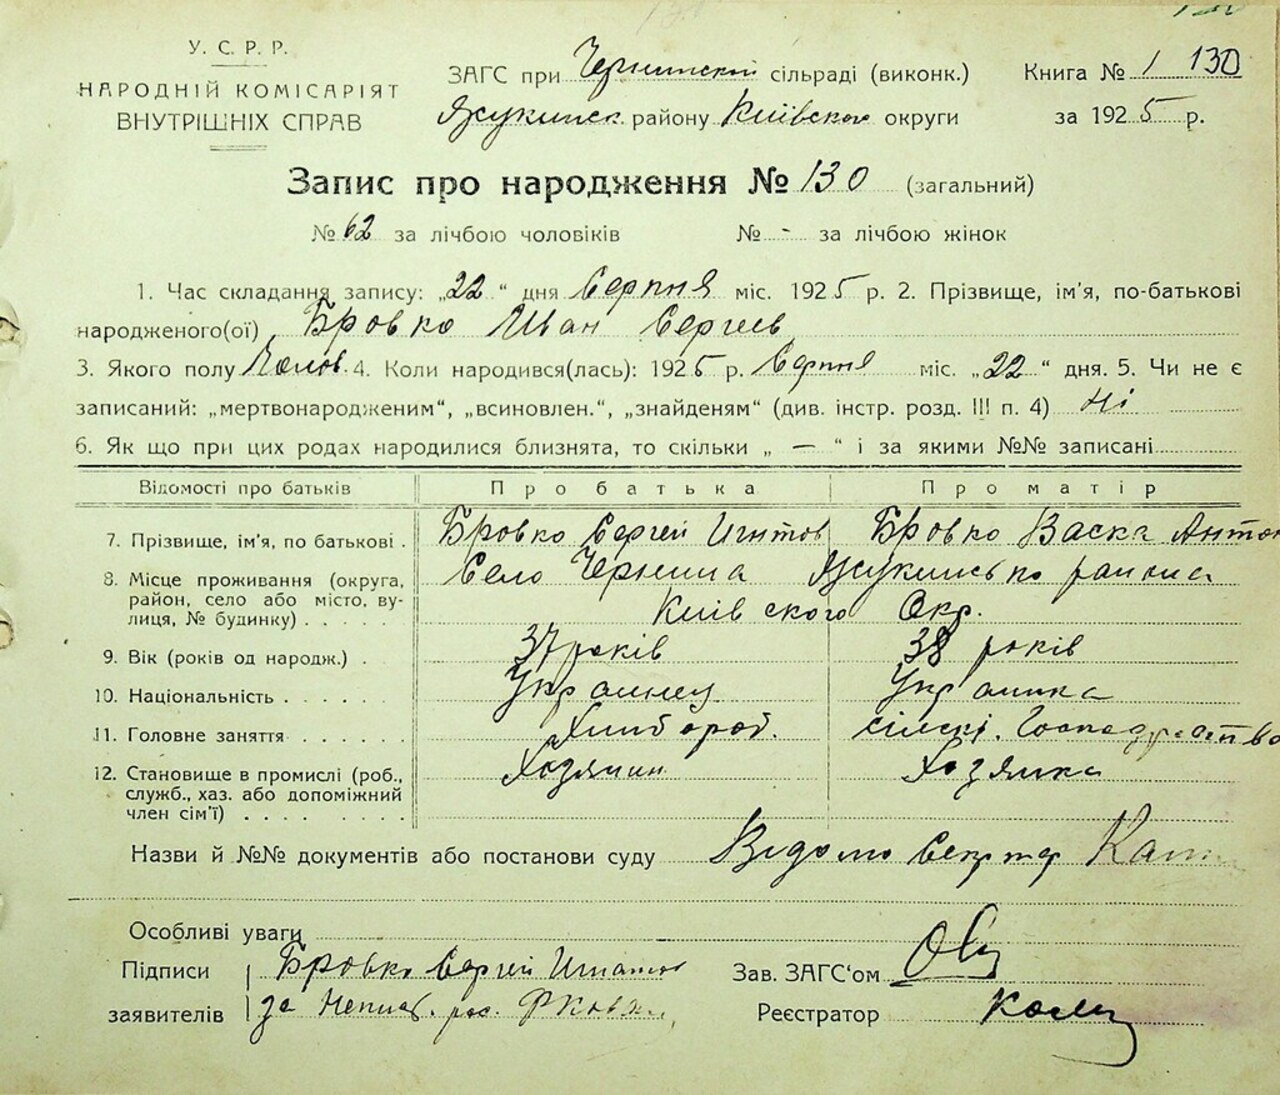 У. С. Р. Р.
НАРОДНІЙ КОМІСАРІЯТ
ВНУТРІШНІХ СПРАВ
ЗАГС при Чернинской сільраді (виконк.)
Книга № 1 130
району Київского округи
за 1925 р.
Запис про народження № 130 (загальний)
№ 62 за лічбою чоловіків № - за лічбою жінок
1. Час складання запису: „22“ дня Серпня міс. 1925 р. 2. Прізвище, ім'я, по-батькові
народженого(ої) Бровко Иван Сергеев
3. Якого полу Чолов. 4. Коли народився(лась): 1925 р. Серпня міс. „22“ дня. 5. Чи не є
записаний: „мертвонародженим“, „всиновлен.“, „знайденям“ (див. інстр. розд. III п. 4) Ні
6. Як що при цих родах народилися близнята, то скільки „ — “ і за якими №№ записані
Відомості про батьків Про батька Про матір
7. Прізвище, ім'я, по батькові . Бровко Сергей Игнатов Бровко Васка Антон
8. Місце проживання (округа, район, село або місто, вулиця, № будинку) . . . . . Село Чернина района
Київського Окр.
9. Вік (років од народж.) . 37 років 38 років
10. Національність . . . . Украинец Украинка
11. Головне заняття . . . . . . Хлибороб. сілскі. Господарство
12. Становище в промислі (роб., Хозяин Хозяйка
служб., хаз. або допоміжний
член сім'ї) . . . . . . . .
Назви й №№ документів або постанови суду Відомо
Особливі уваги
Підписи Бровко Сергей Игнатов
Зав. ЗАГС'ом
заявителів за Непис. рос.
Реєстратор